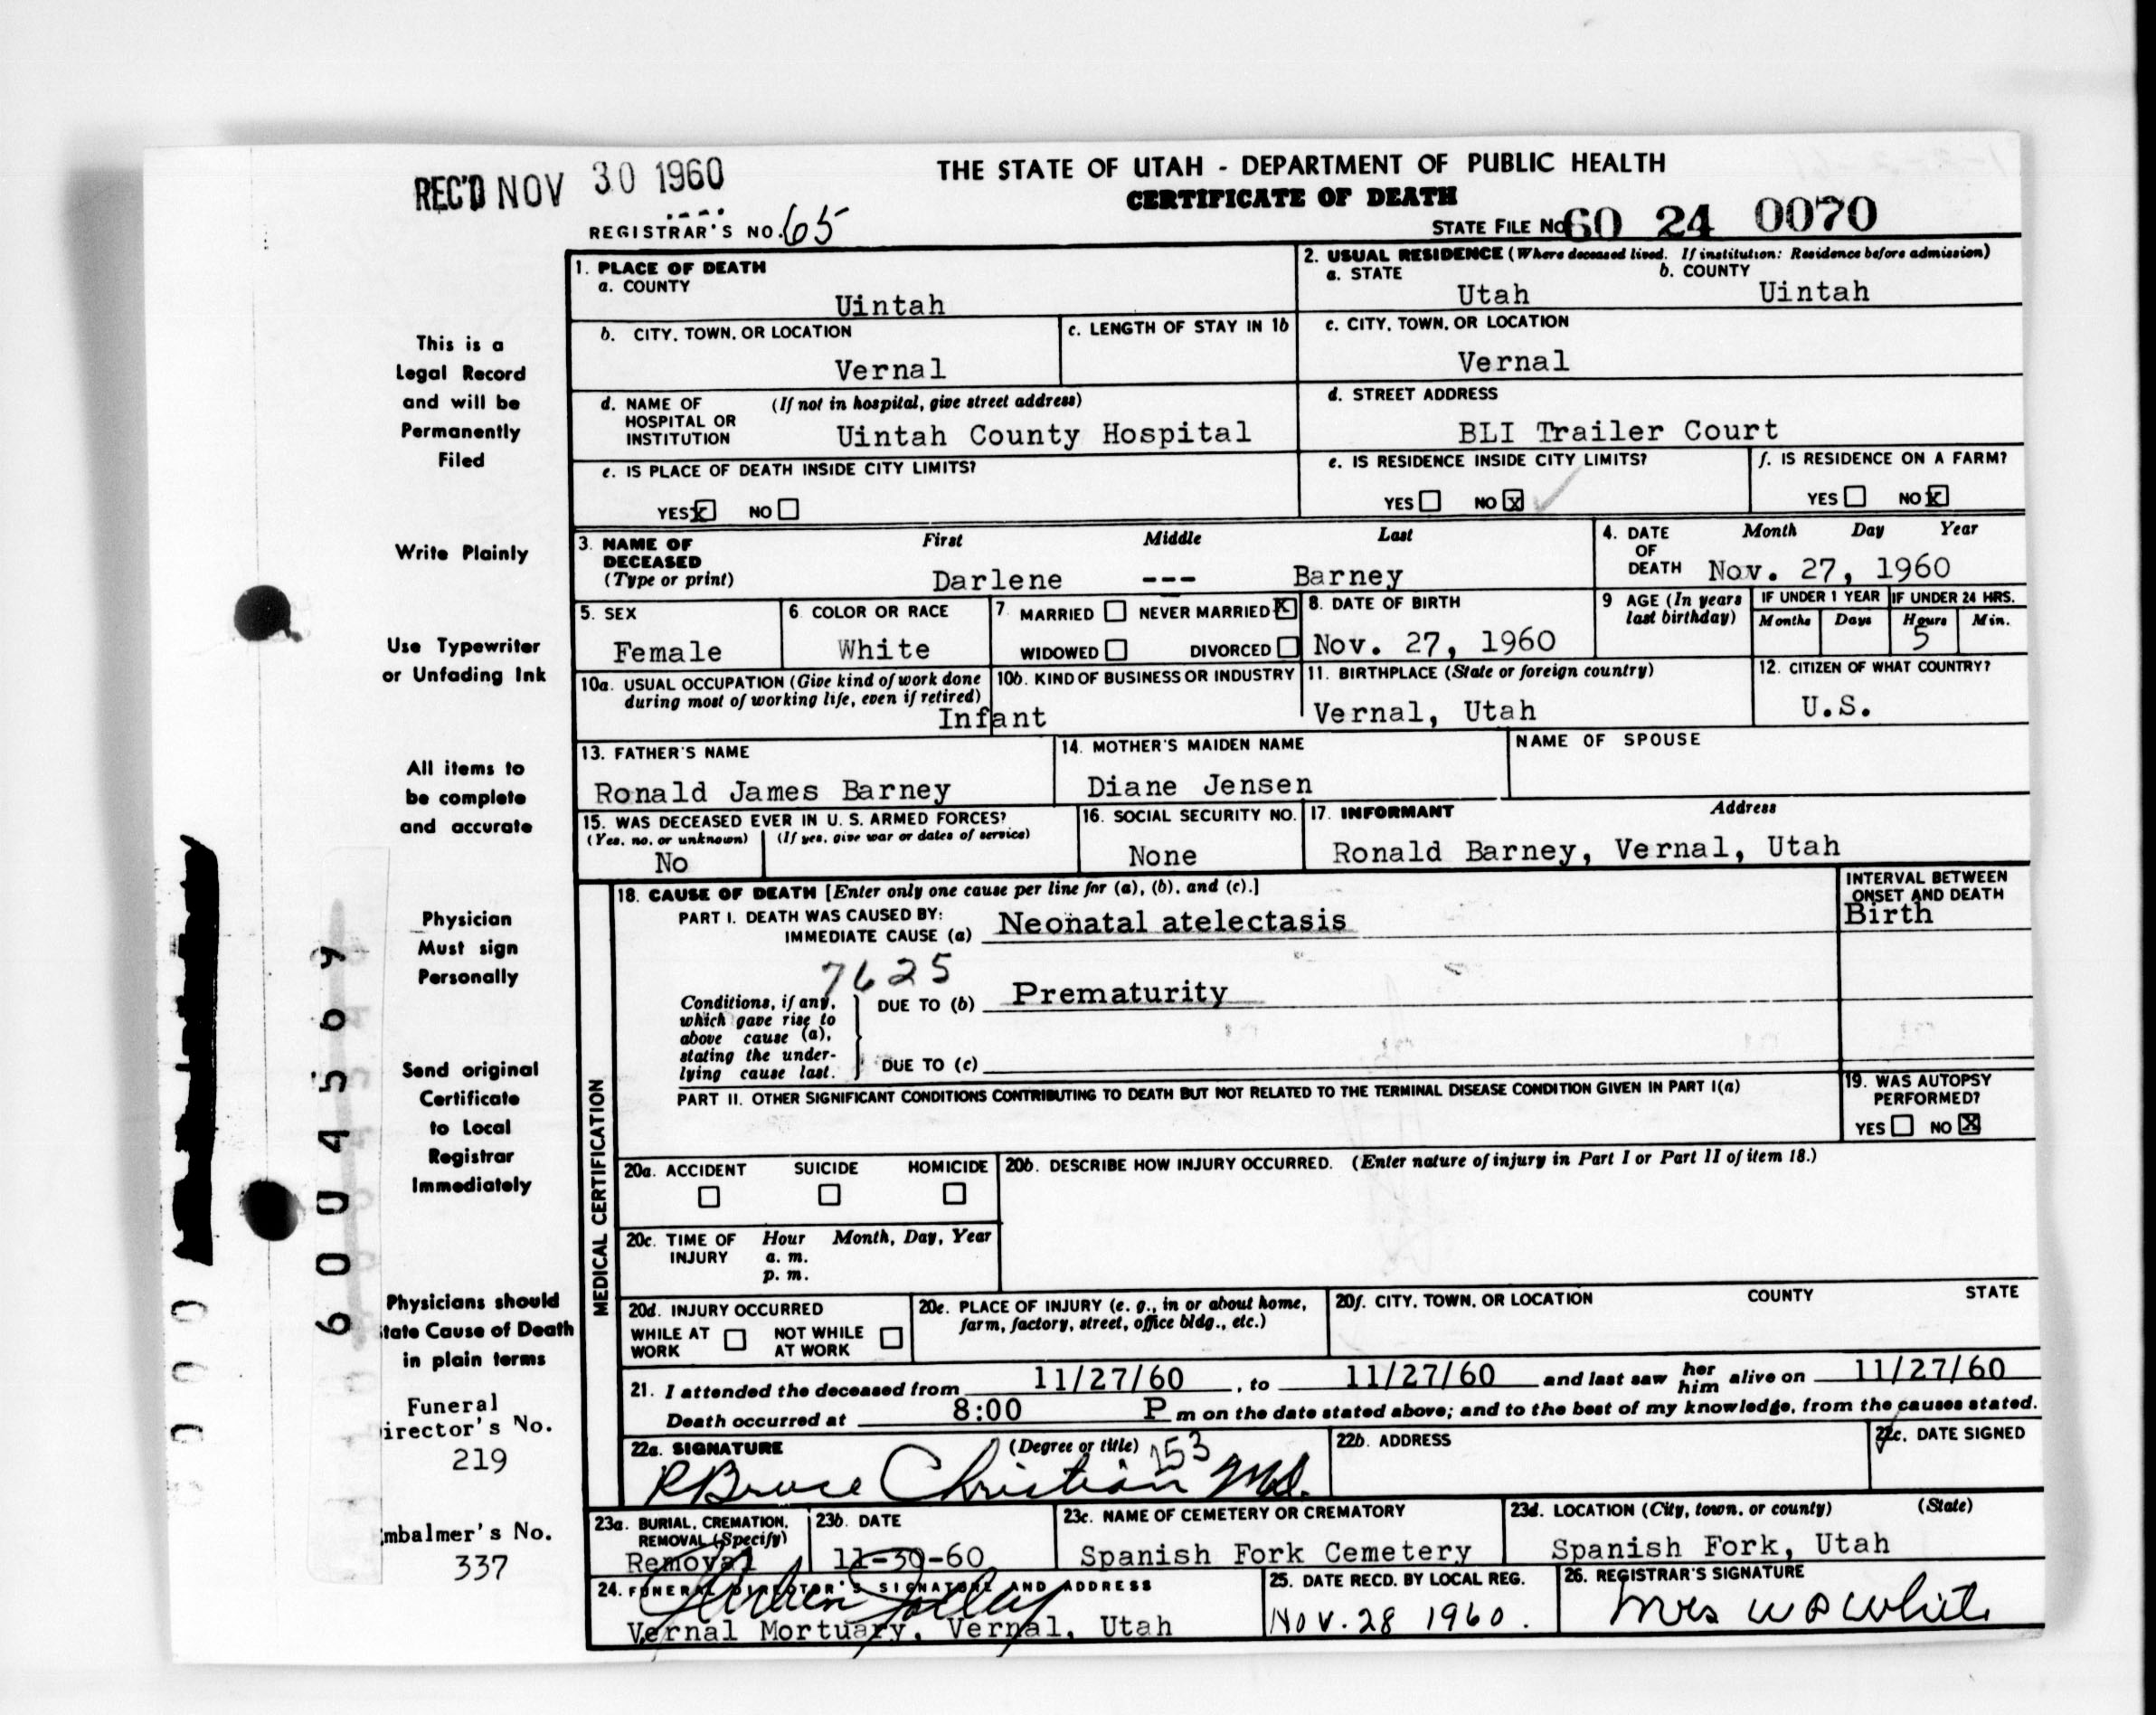 REC'D NOV 30 1960
THE STATE OF UTAH - DEPARTMENT OF PUBLIC HEALTH
CERTIFICATE OF DEATH
REGISTRAR'S NO. 65
STATE FILE No 60 24 0070
1. PLACE OF DEATH
a. COUNTY
Uintah
2. USUAL RESIDENCE (Where deceased lived. If institution: Residence before admission)
a. STATE b. COUNTY
Utah Uintah
b. CITY, TOWN, OR LOCATION
Vernal
c. LENGTH OF STAY IN 1b
c. CITY, TOWN, OR LOCATION
Vernal
d. NAME OF (If not in hospital, give street address)
HOSPITAL OR
INSTITUTION Uintah County Hospital
d. STREET ADDRESS
BLI Trailer Court
e. IS PLACE OF DEATH INSIDE CITY LIMITS?
YES X NO
e. IS RESIDENCE INSIDE CITY LIMITS?
YES NO X
f. IS RESIDENCE ON A FARM?
YES NO X
3. NAME OF First Middle Last
DECEASED
(Type or print) Darlene --- Barney
4. DATE Month Day Year
OF
DEATH Nov. 27, 1960
5. SEX
Female
6. COLOR OR RACE
White
7. MARRIED NEVER MARRIED X
WIDOWED DIVORCED
8. DATE OF BIRTH
Nov. 27, 1960
9 AGE (In years
last birthday)
IF UNDER 1 YEAR IF UNDER 24 HRS.
Months Days Hours Min.
5
10a. USUAL OCCUPATION (Give kind of work done
during most of working life, even if retired)
Infant
10b. KIND OF BUSINESS OR INDUSTRY
11. BIRTHPLACE (State or foreign country)
Vernal, Utah
12. CITIZEN OF WHAT COUNTRY?
U.S.
13. FATHER'S NAME
Ronald James Barney
14. MOTHER'S MAIDEN NAME
Diane Jensen
NAME OF SPOUSE
15. WAS DECEASED EVER IN U. S. ARMED FORCES?
(Yes, no, or unknown) (If yes, give war or dates of service)
No
16. SOCIAL SECURITY NO.
None
17. INFORMANT Address
Ronald Barney, Vernal, Utah
MEDICAL CERTIFICATION
18. CAUSE OF DEATH [Enter only one cause per line for (a), (b), and (c).]
PART I. DEATH WAS CAUSED BY:
IMMEDIATE CAUSE (a) Neonatal atelectasis
INTERVAL BETWEEN
ONSET AND DEATH
Birth
7625
Conditions, if any,
which gave rise to
above cause (a),
stating the under-
lying cause last.
DUE TO (b) Prematurity
DUE TO (c)
PART II. OTHER SIGNIFICANT CONDITIONS CONTRIBUTING TO DEATH BUT NOT RELATED TO THE TERMINAL DISEASE CONDITION GIVEN IN PART I(a)
19. WAS AUTOPSY
PERFORMED?
YES NO X
20a. ACCIDENT SUICIDE HOMICIDE
20b. DESCRIBE HOW INJURY OCCURRED. (Enter nature of injury in Part I or Part II of item 18.)
20c. TIME OF Hour Month, Day, Year
INJURY a. m.
p. m.
20d. INJURY OCCURRED
WHILE AT NOT WHILE
WORK AT WORK
20e. PLACE OF INJURY (e. g., in or about home,
farm, factory, street, office bldg., etc.)
20f. CITY, TOWN, OR LOCATION COUNTY STATE
21. I attended the deceased from 11/27/60, to 11/27/60 and last saw her him alive on 11/27/60
Death occurred at 8:00 P m on the date stated above; and to the best of my knowledge, from the causes stated.
22a. SIGNATURE (Degree or title) 153
R Bruce Christian M.D.
22b. ADDRESS
22c. DATE SIGNED
23a. BURIAL, CREMATION,
REMOVAL (Specify)
Removal
23b. DATE
11-30-60
23c. NAME OF CEMETERY OR CREMATORY
Spanish Fork Cemetery
23d. LOCATION (City, town, or county) (State)
Spanish Fork, Utah
24. FUNERAL DIRECTOR'S SIGNATURE AND ADDRESS
Vernal Mortuary, Vernal, Utah
25. DATE RECD. BY LOCAL REG.
NOV. 28 1960.
26. REGISTRAR'S SIGNATURE
Mrs W P White
This is a
Legal Record
and will be
Permanently
Filed
Write Plainly
Use Typewriter
or Unfading Ink
All items to
be complete
and accurate
Physician
Must sign
Personally
Send original
Certificate
to Local
Registrar
Immediately
Physicians should
tate Cause of Death
in plain terms
Funeral
irector's No.
219
mbalmer's No.
337
6004569